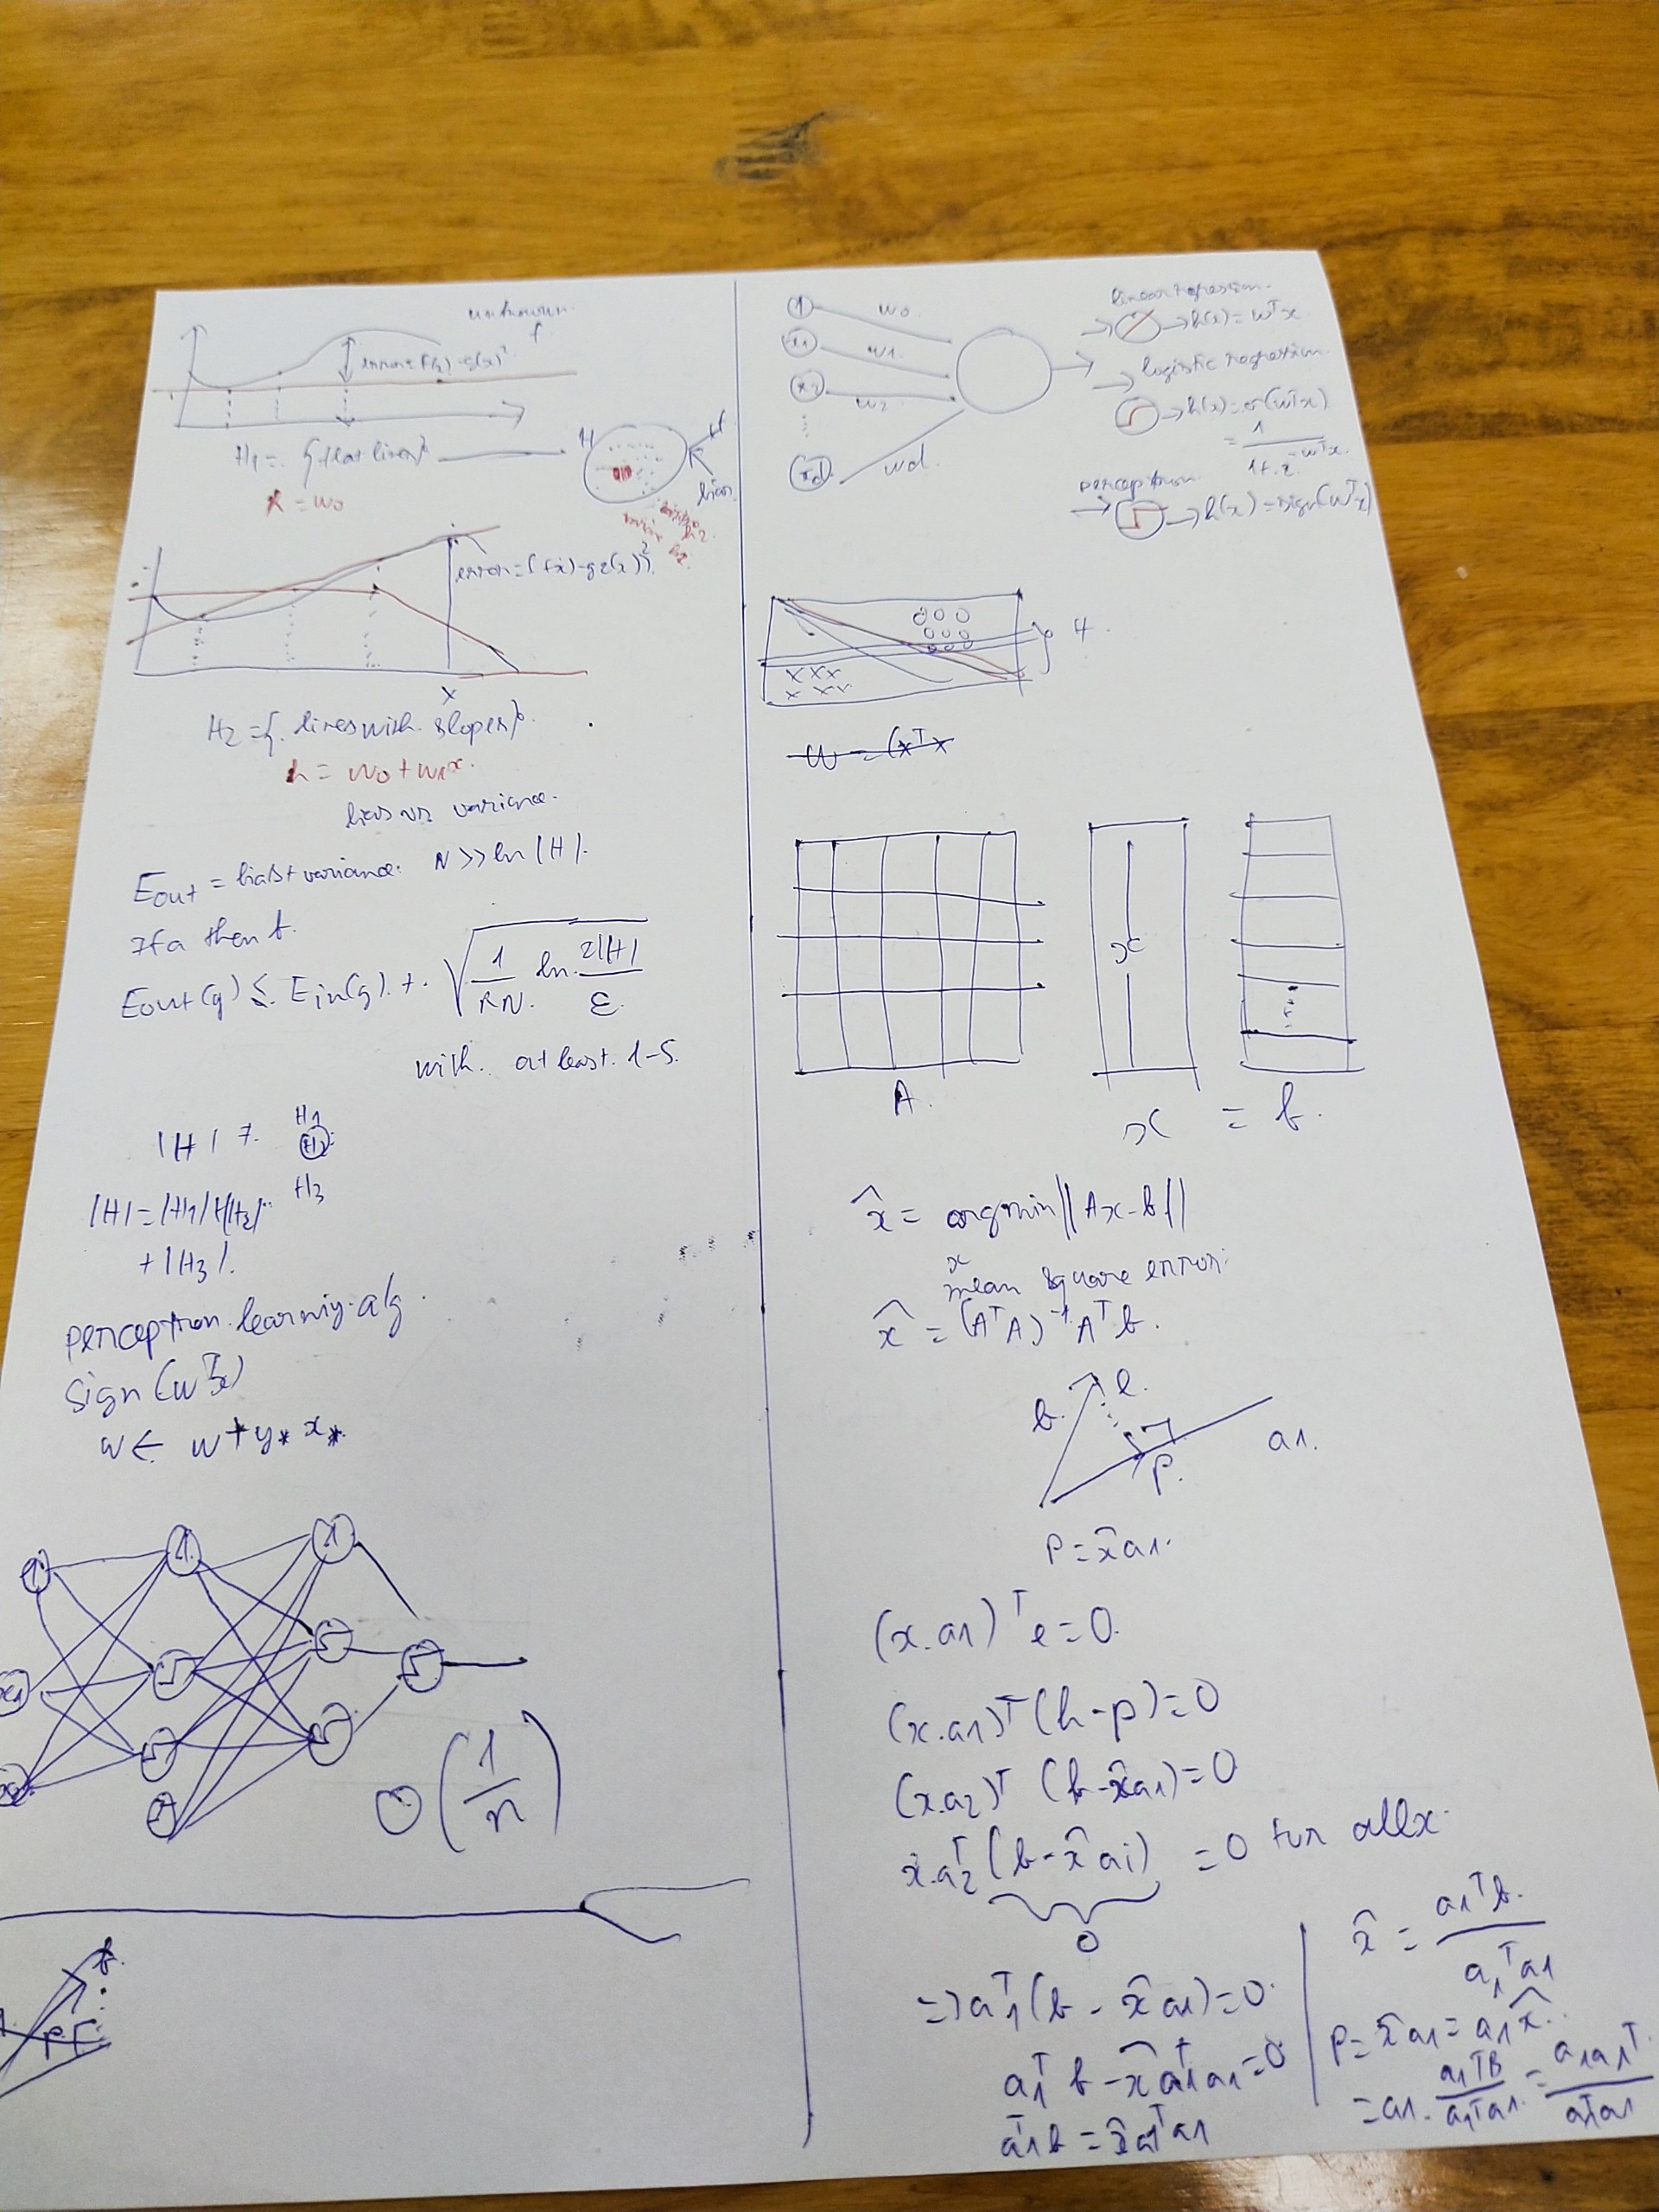 unknown.
f
H
H1 = {flat lines}
bias
= w0
error = (f(x) - g2(x))²
x
H2 = {. lines with slopes}.
h = w0 + w1x.
bias vs variance.
Eout = bias + variance. N >> ln |H|.
If a then b.
Eout(g) ≤ Ein(g) + √( 1/2N. ln. 2|H|/ε. )
with. at least. 1-δ.
H1
|H| ?. H2
H3
|H| = |H1| + |H2|
+ |H3|.
perceptron. learning. alg.
sign (wᵀx)
w ← w + y* x*.
1 1 1
x1
x2
1
O(1/n)
b.
p
1 w0
x1 w1.
x2 w2
xd wd.
linear regression.
→ h(x) = wᵀx
logistic regression.
→ h(x) = σ(wᵀx)
= 1 / 1+e^-wᵀx.
perceptron.
→ h(x) = sign(wᵀx)
ooo
ooo
ooo
H.
xxx
xxx
w = (xᵀx
x
A. x = b.
x̂ = argmin ||Ax - b||
x
mean square error.
x̂ = (AᵀA)⁻¹Aᵀb.
b. e.
p. a1.
p = x̂ a1.
(x.a1)ᵀ e = 0.
(x.a1)ᵀ (b - p) = 0
(x.a2)ᵀ (b - x̂a1) = 0
x.a2ᵀ (b - x̂ ai) = 0 for all x.
0
=> a1ᵀ (b - x̂ a1) = 0.
a1ᵀ b - x̂ a1ᵀ a1 = 0
a1ᵀb = x̂ a1ᵀ a1
x̂ = a1ᵀb. / a1ᵀa1
p = x̂ a1 = a1 x̂.
= a1. a1ᵀB / a1ᵀa1. = a1a1ᵀ / a1ᵀa1